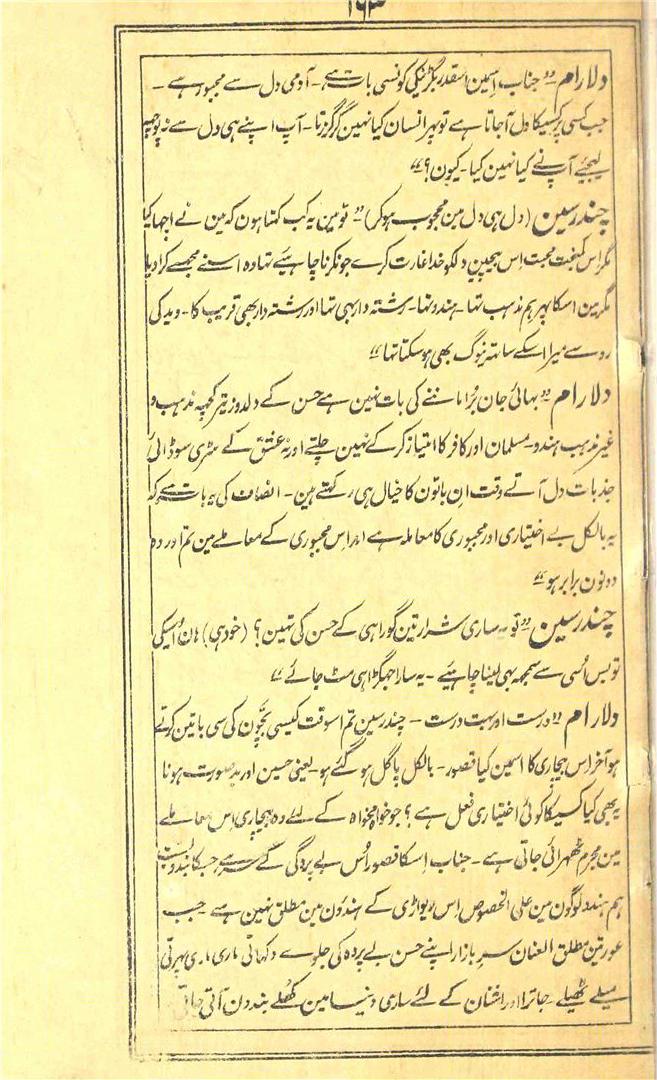 ۱۶۳
دلارام "جناب اسمین اسقدر بگڑنیکی کونسی بات ہے۔ آدمی دل سے مجبور ہے۔
جب کسی پر کسیکا دل آجاتا ہے تو پہر انسان کیا نہین کر گزرتا۔ آپ اپنے ہی دل سے نہ پوچہہ
لیجئے آپ نے کیا نہین کیا۔ کیون؟"
چندرسین (دل ہی دل مین محجوب ہوکر) "تو مین یہ کب کہتا ہون کہ مین نے اچہا کیا
مگر اس کمبخت محبت اس بیچین دلکو خدا غارت کرے جو نکرنا چاہیئے تہا وہ اسنے مجہسے کرا دیا
مگر مین اسکا پہر ہم مذہب تہا۔ ہندو تہا۔ رشتہ دار بہی تہا اور رشتہ دار بھی قریب کا۔ وید کی
رو سے میرا اسکے ساتہہ نیوگ بھی ہوسکتا تہا"
دلارام "بہائی جان بُرا ماننے کی بات نہین ہے حسن کے دلدوز تیر کچہہ مذہب و
غیر مذہب ہندو۔ مسلمان اور کافر کا امتیاز کرکے نہین چلتے اور نہ عشق کے سڑی سوڈائی
جذبات دل آتے وقت ان باتون کا خیال ہی رکہتے ہین۔ انصاف کی یہ بات ہے کہ
یہ بالکل بے اختیاری اور مجبوری کا معاملہ ہے اور اس مجبوری کے معاملے مین تم اور وہ
دونون برابر ہو"
چندرسین "تو یہ ساری شرارتین گورا ہی کے حسن کی تہین؟ (خود ہی) ہان اسیکی
تو بس اُسی سے سمجہہ بھی لینا چاہیئے۔ یہ سارا جہگڑا ہی مٹ جائے"
دلارام "درست اور بہت درست۔ چندرسین تم اسوقت کیسی بچّون کی سی باتین کرتے
ہو آخر اس بیچاری کا اسمین کیا قصور۔ بالکل پاگل ہو گئے ہو۔ یعنی حسین اور بدصورت ہونا
یہ بھی کیا کسیکا کوئی اختیاری فعل ہے؟ جو خواہ مخواہ کے لئے وہ بیچاری اس معاملے
مین مجرم ٹھہرائی جاتی ہے۔ جناب اسکا قصور اُس بے پردگی کے سر ہے جسکا بندوبست
ہم ہندو لوگون مین علی الخصوص اس ریواڑی کے ہندؤن مین مطلق نہین ہے جب
عورتین مطلق العنان سرِ بازار اپنے حسن بے پردہ کی جلوے دکہاتی ماری ماری پہرتی
میلے ٹھیلے۔ جاترا اور اشنان کے لئے ساری دنیا مین کھلے بند دن آتی جاتی